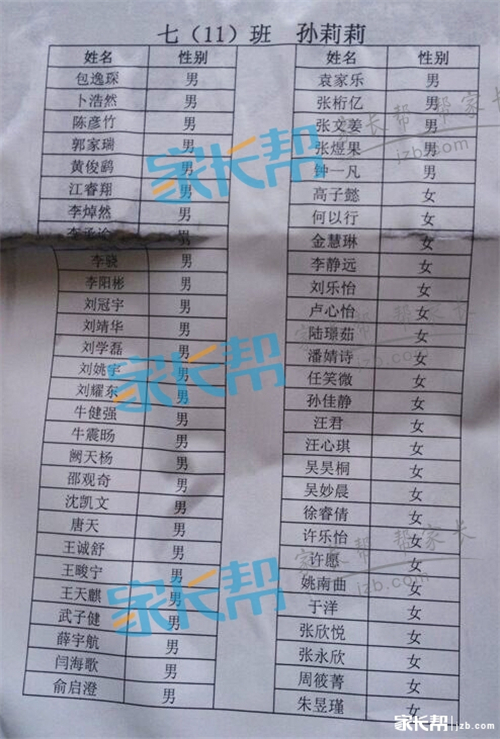 七（11）班 孙莉莉
姓名 性别
包逸琛 男
卜浩然 男
陈彦竹 男
郭家瑞 男
黄俊鹞 男
江睿翔 男
李焯然 男
男
李骁 男
李阳彬 男
刘冠宇 男
刘靖华 男
刘学磊 男
刘姚宇 男
刘耀东 男
牛健强 男
牛震旸 男
阙天杨 男
邵观奇 男
沈凯文 男
唐天 男
王诚舒 男
王畯宁 男
王天麒 男
武子健 男
薛宇航 男
闫海歌 男
俞启澄 男
姓名 性别
袁家乐 男
张桁亿 男
张文姜 男
张煜果 男
钟一凡 男
高子懿 女
何以行 女
金慧琳 女
李静远 女
刘乐怡 女
卢心怡 女
陆璟茹 女
潘婧诗 女
任笑微 女
孙佳静 女
汪君 女
汪心琪 女
吴昊桐 女
吴妙晨 女
徐睿倩 女
许乐怡 女
许愿 女
姚南曲 女
于洋 女
张欣悦 女
张永欣 女
周筱菁 女
朱昱瑾 女
家长帮
家长帮
家长帮
家长帮 帮家长
jzb.com
家长帮 帮家长
jzb.com
家长帮 jzb.com